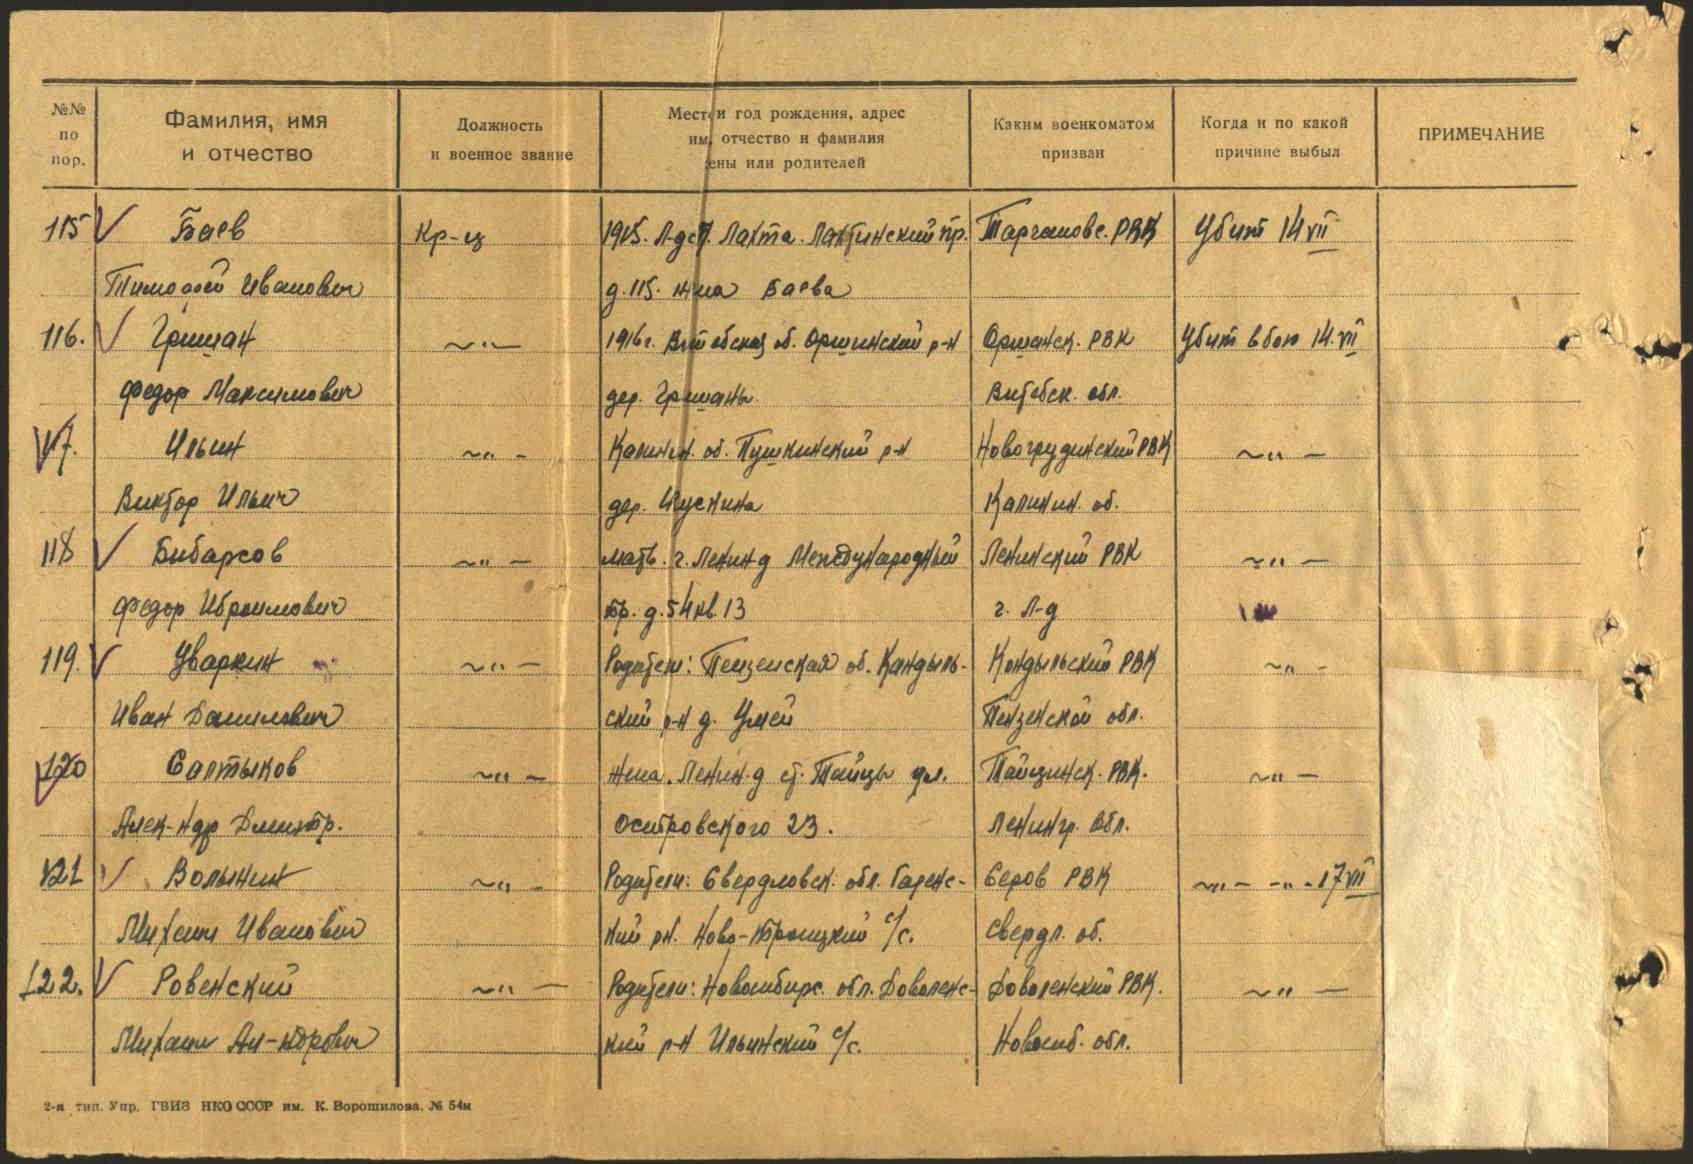 №№ по пор.
Фамилия, имя и отчество
Должность и военное звание
Место и год рождения, адрес им, отчество и фамилия ены или родителей
Каким военкоматом призван
Когда и по какой причине выбыл
ПРИМЕЧАНИЕ
115 Баев Кр-ц 1915. Л-д ст. Лахта. Лахтинский пр. РВК Убит 14 VII
Тимофей Иванович д. 115. жена Баева
116. Гришан ~"— 1916 г. Витебская об. Оршинский р-н Оршанск. РВК Убит в бою 14. VII
Федор Максимович дер. Гришаны. Витебск. обл.
117. Ильин ~"— Калинин. об. Пушкинский р-н РВК ~"—
Виктор Ильич дер. Калинин. об.
118 Бибарсов ~"— мать. г. Ленинд Международный Ленинский РВК ~"—
Федор Иброимович пр. д. 54 кв. 13 г. Л-д
119. Уваркин ~"— Родители: Пензенская об. Кандыль- Кондыльский РВК ~"—
Иван Данилович ский р-н д. Умей Пензенской обл.
120 Салтыков ~"— жена. Ленин-д ст. Тайцы ул. РВК. ~"—
Алек-ндр Дмитр. Островского 23. Ленингр. Обл.
121 Волынин ~"— Родители: Свердловск. обл. Гаренс- Серов РВК ~"— -"- 17 VII
Михаил Иванович кий р-н. Ново-Троицкий с/с. Свердл. об.
122. Ровенский ~"— Родители: Новосибирс. обл. Доволенс- Доволенский РВК. ~"—
Михаил Ал-ндрович кий р-н Ильинский с/с. Новосиб. обл.
2-я тип. Упр. ГВИЗ НКО СССР им. К. Ворошилова. № 54м